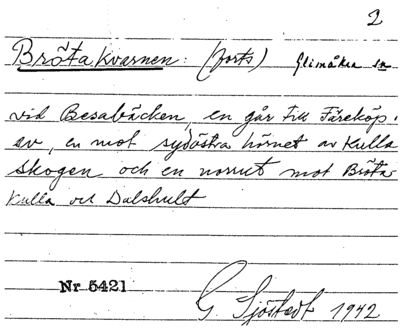 2
Brötakvarnen: (forts) Glimåkra sn
vid Besabäcken, en går till Färeköp.
ev, en mot sydöstra hörnet av Kulla
skogen och en norrut mot Bröta-
kulla och Dalshult
Nr 5421
G. Sjöstedt 1942